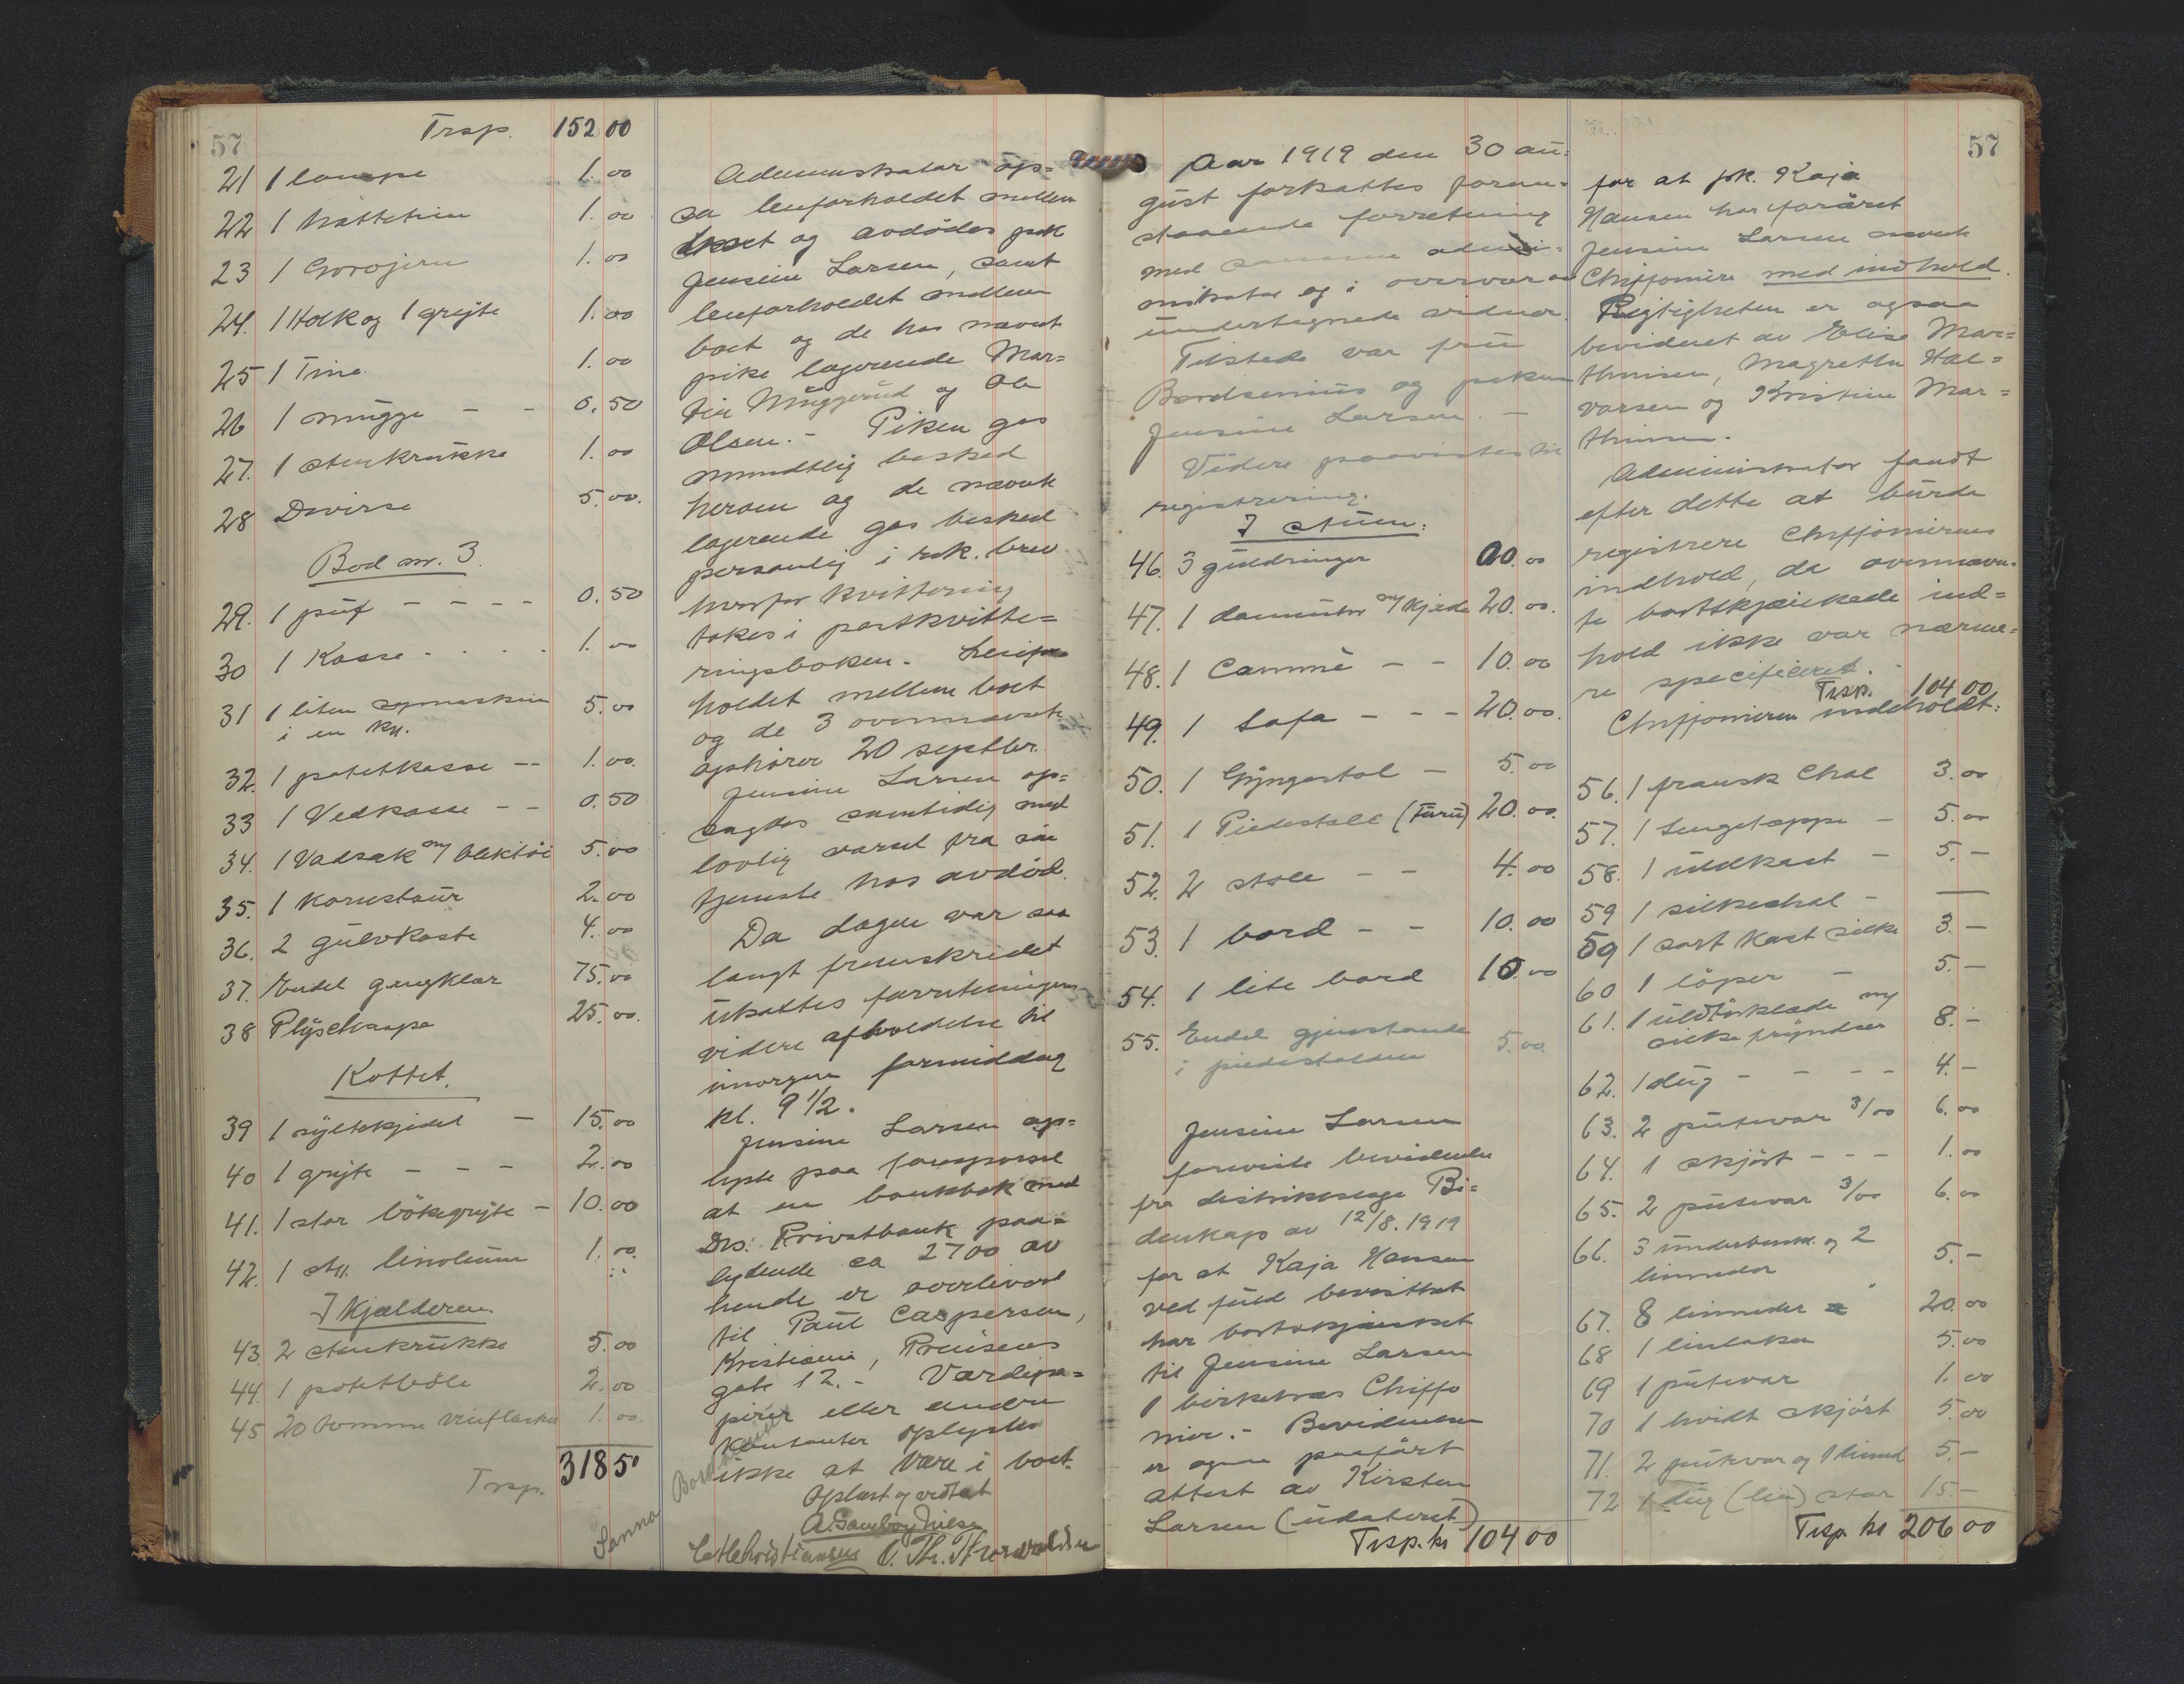 57
Trsp. 152 00
21 1 lampe 1.00
22 1 hattetrin 1.00
23 1 Gorojern 1.00
24. 1 Holk og 1 gryte 1.00
25 1 Tine 1.00
26 1 mugge - - 0.50
27. 1 stenkrukke 1.00
28 Diverse 5.00.
Bod nr. 3.
29. 1 puf - - - - 0.50
30 1 Kasse - . . . 1.00
31 1 liten symaskin 5.00
i en kr.
32. 1 potetkasse -- 1.00.
33 1 Vedkasse - - 0.50
34. 1 Vadsæk m/ blektöi 5.00
35. 1 kornstaur 2.00
36. 2 gulvkoste 4.00
37. Endel gangklær 75.00
38 Plyschkape 25.00.
Kottet.
39 1 syltekjedel - 15.00
40 1 gryte - - - 2.00
41. 1 stor bökegryte - 10.00
42. 1 st. linoleum 1.00.
I kjælderen
43. 2 stenkrukke 5.00
44. 1 potetbØle 2.00
45 20 tomme vinflasker 1.00.
Trsp. 318 50
Administrator op=
sa leieforholdet mellem
boet og avdödes pik
Jensine Larsen, samt
leieforholdet mellem
boet og de hos nævnte
pike logerende Mar=
tin Muggerud og Ole
Olsen. - Piken gas
mundtlig besked
herom og de nævnte
logerende gas besked
personlig i rek. brev
hvorfor kvittering
tokes i postkvitte=
ringsboken. Leiefor
holdet mellem boet
og de 3 ovennævnte
ophører 20 septbr.
Jensine Larsen op=
sagdes samtidig med
lovlig varsel fra sin
tjeneste hos avdöd.
Da dagen var saa
langt fremskredet
utsattes forretningens
videre afholdelse til
imorgen formiddag
kl. 9 1/2.
Jensine Larsen op=
lyste paa forespørsel
at en bankbok med
Drs. Privatbank paa=
lydende ca 2700 av
hende er overlevert
til Paul Caspersen,
Kristiania, Prinsens
gate 12. - Værdipa=
pirer eller andre
Kontanter oplystes
ikke at være i boet.
Oplæst og vedtat
A. Gamborg Nilsen
Sanna Bord
O. Th. Thorvaldsen
Aar 1919 den 30 au=
gust forsattes foran=
staaende forretning
med samme admi=
nistrator og i overvær av
undertegnede vidner.
Tilstede var fru
Bordsenius og piken
Jensine Larsen. -
Videre paavistes til
registrering.
I stuen:
46. 3 guldringer 20.00
47. 1 dameuhr m/kjede 20.00.
48. 1 Cammè - - 10.00
49. 1 Sofa - - - 20.00.
50. 1 Gyngestol - 5.00
51. 1 Piedestall (Furu) 20.00.
52. 2 stole - - 4.00
53. 1 bord - - 10.00
54. 1 lite bord 10.00
55. Endel gjenstande
i piedestalden 5.00
Jensine Larsen
foreviste bevidnelse
fra distriktslæge Bi=
denkap av 12/8.1919
for at Kaja Hansen
ved fuld bevisthet
har bortskjænket
til Jensine Larsen
1 birketræs Chiffo
nier. - Bevidnelsen
er ogsaa paaført
attest av Kirsten
Larsen (udateret)
Trsp. kr 104 00
57
for at frk. Kaja
Hansen har foræret
Jensine Larsen nævnte
Chiffoniere med indhold.
Rigtigheten er ogsaa
bevidnet av Elise Mar=
thinsen, Magrethe Hal=
vorsen og Kristine Mar=
thinsen.
Administrator fandt
efter dette at burde
registrere Chiffonierens
indhold, da ovennævn-
te bortskjænkede ind=
hold ikke var nærme=
re specificeret. -
Trsp. 104 00
Chiffonieren indeholdt:
56. 1 fransk Chal 3.00
57. 1 Sengetæppe - 5.00
58. 1 uldkast - 5.-
59 1 silkeshal - —
59 1 sort Kast silke 3.-
60 1 löper - 5.-
61. 1 uldtörklæde m/
silke fryndser 8.-
62. 1 dug - - - - 4.-
63. 2 putevar 3/00 6.00
64. 1 skjört - - - 1.00
65. 2 putevar 3/00 6.00
66. 3 underbenkl. og 2
linneder 5.-
67. 8 linneder 20.00
68 1 linlaken 5.00
69 1 putevar 1.00
70 1 hvidt skjört 5.00
71. 2 putevar og 1 linned 5.-
72 1 dug (lin) stor 15.-
Trsp. kr 206 00